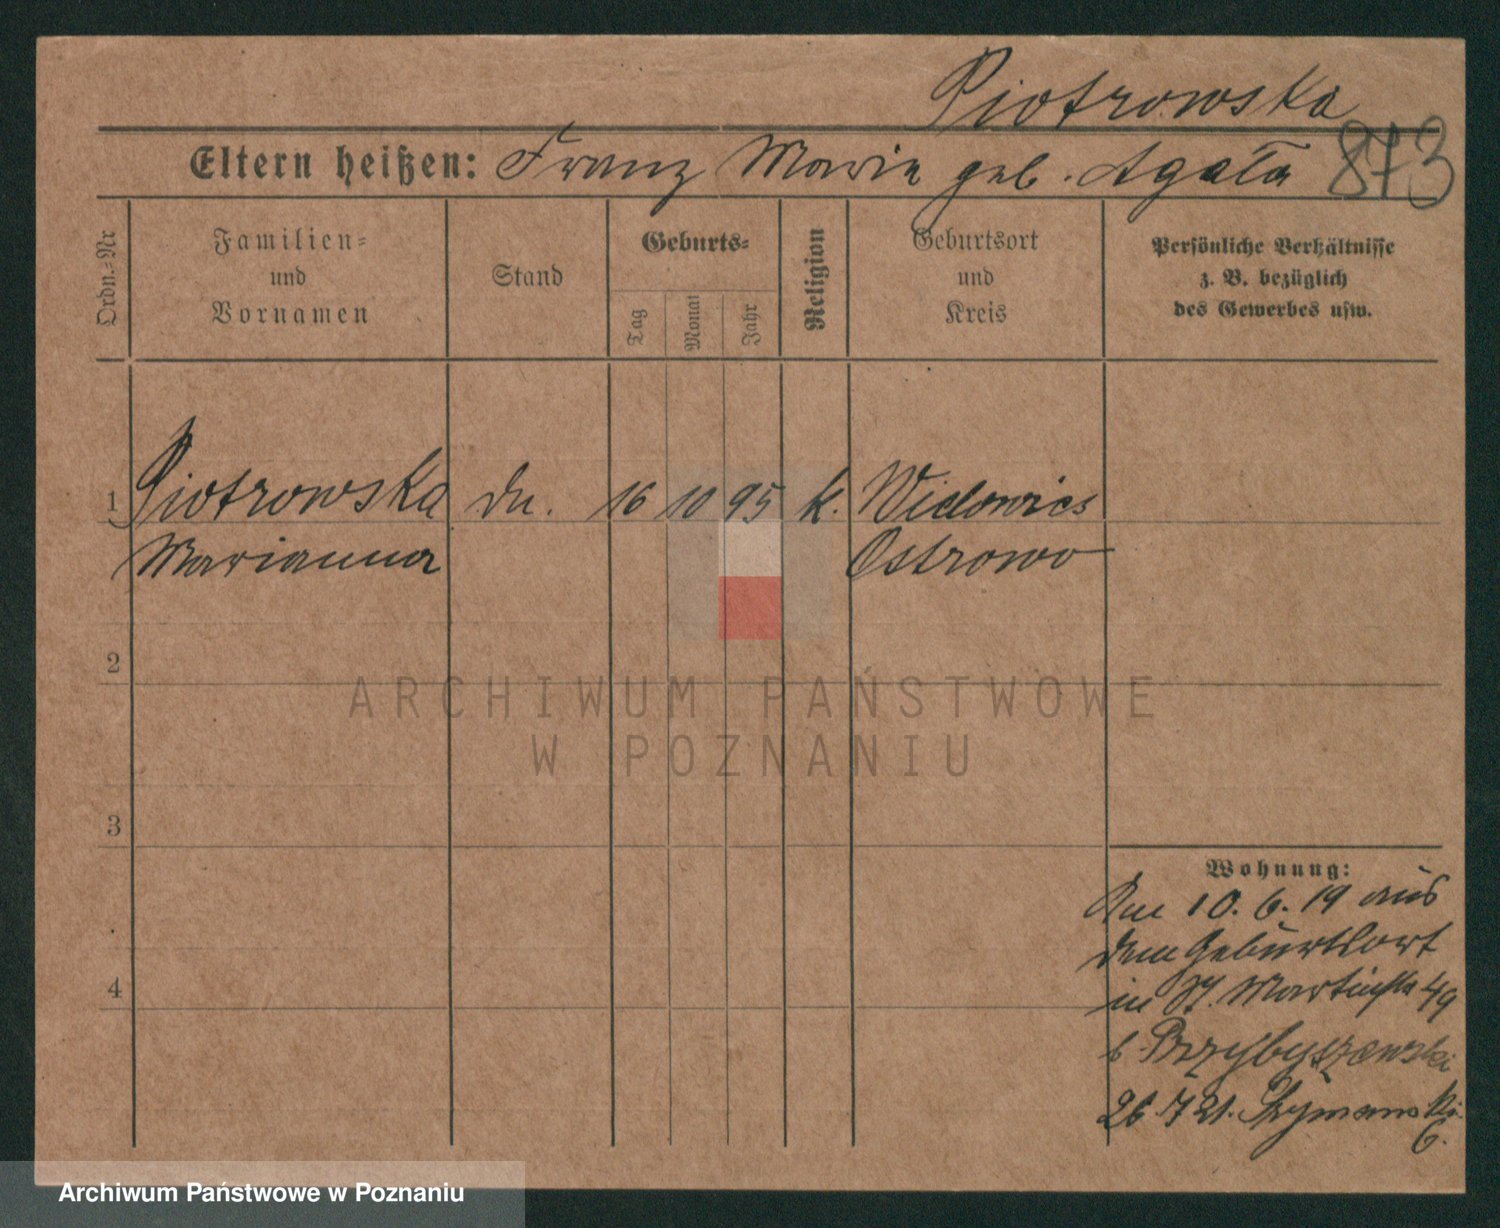 Piotrowska
Eltern heißen: Franz Maria geb. Agata 873
Ordn.-Nr
Familien-
und
Vornamen
Stand
Geburts-
Tag
Monat
Jahr
Religion
Geburtsort
und
Kreis
Persönliche Verhältnisse
z. B. bezüglich
des Gewerbes usw.
1 Piotrowska Dn. 16 10 95 k.
Marianna Ostrowo
2
ARCHIWUM PAŃSTWOWE
W POZNANIU
3
Wohnung:
Am 10. 6. 19 aus
dem Geburtsort
in St. Martinstr 49
b Przybyszewski
26 7 21. Szymanski
4
Archiwum Państwowe w Poznaniu